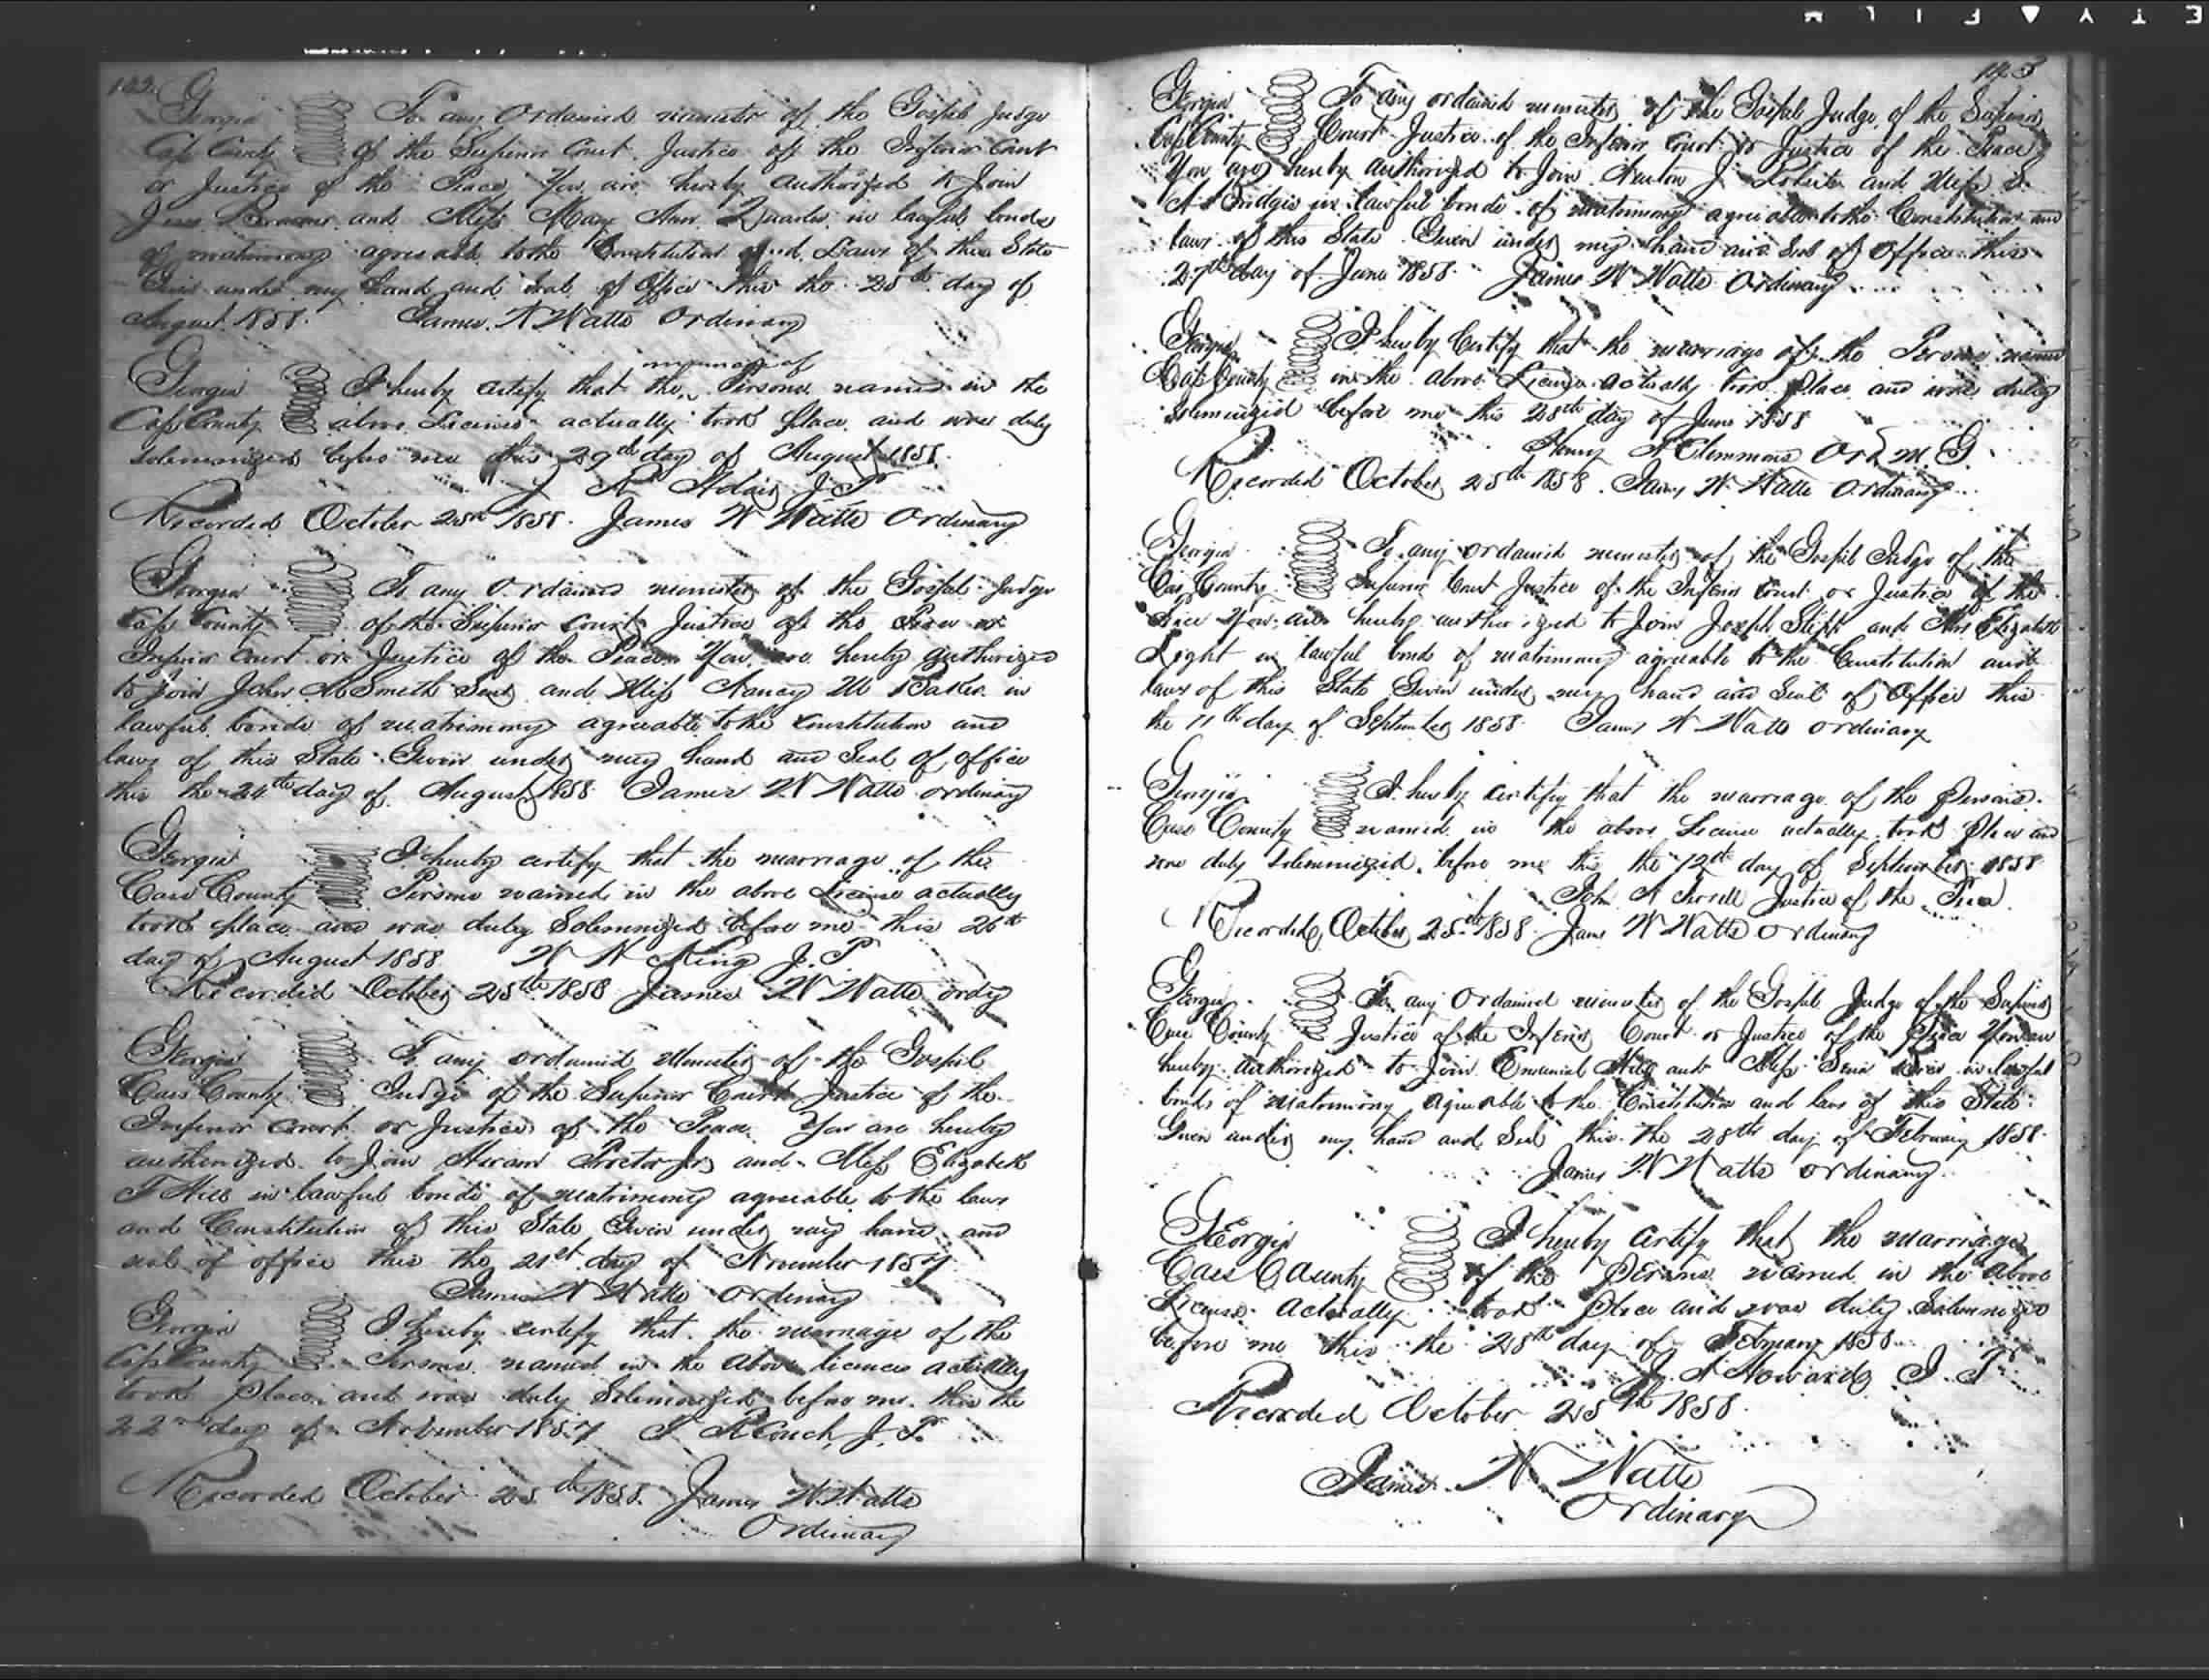 Georgia To any Ordained minister of the Gospel Judge
Cass County of the Superior Court Justice of the Inferior Court
or Justice of the Peace You are hereby authorized to Join
and Miss Mary Ann Quarles in lawful bonds
of matrimony agreeable to the Constitution and Laws of this State
Given under my hand and seal of office this the 28th day of
August 1858. James W Watts Ordinary
Georgia I hereby certify that the Persons named in the
Cass County above License actually took place and was duly
solemnized before me this 29th day of August 1858.
J. P.
Recorded October 25th 1858. James W Watts Ordinary
Georgia To any Ordained minister of the Gospel Judge
Cass County of the Superior Court Justice of the Peace or
Inferior Court or Justice of the Peace You are hereby authorized
to join John Smith Senr and Miss Nancy M Baker in
lawful bonds of matrimony agreeable to the constitution and
laws of this State Given under my hand and Seal of office
this the 24th day of August 1858 James W Watts ordinary
Georgia I hereby certify that the marriage of the
Cass County Persons named in the above License actually
took place and was duly Solemnized before me this 26th
day of August 1858 King J. P
Recorded October 25th 1858 James W Watts ordy
Georgia To any ordained Minister of the Gospel
Cass County Judge of the Superior Court Justice of the
Inferior Court or Justice of the Peace You are hereby
authorized to Join Hiram Proctor Jr and Miss Elizabeth
T Hill in lawful bonds of matrimony agreeable to the laws
and Constitution of this State Given under my hand and
seal of office this the 21st day of November 1857
James W Watts Ordinary
Georgia I hereby certify that the marriage of the
Cass County Persons named in the above licences actually
took place and was duly Solemnized before me this the
22nd day of November 1857 Couch J. P.
Recorded October 25th 1858. James W. Watts
Ordinary
Georgia To any ordained minister of the Gospel Judge of the Superior
Cass County Court Justice of the Inferior Court or Justice of the Peace
You are hereby authorized to Join Newton J and Miss
Bridges in lawful bonds of matrimony agreeable to the Constitution and
laws of this State Given under my hand and Seal of Office this
27th day of June 1858 James W Watts Ordinary
Georgia I hereby Certify that the marriage of the Persons named
Cass County in the above License actually took place and was duly
solemnized before me this 28th day of June 1858
Henry Clemmons Ord M G.
Recorded October 25th 1858. James W Watts Ordinary
Georgia To any ordained minister of the Gospel Judge of the
Cass County Superior Court Justice of the Inferior Court or Justice of the
Peace You are hereby authorized to Join Joseph and Mrs Elizabeth
Light in lawful bonds of matrimony agreeable to the Constitution and
laws of this State Given under my hand and Seal of Office this
the 11th day of September 1858 James W Watts ordinary
Georgia I hereby certify that the marriage of the Persons
Cass County named in the above License actually took place and
was duly Solemnized before me this the 12th day of September 1858
John Justice of the Peace
Recorded October 25th 1858 James W Watts Ordinary
Georgia To any Ordained minister of the Gospel Judge of the Superior
Cass County Justice of the Inferior Court or Justice of the Peace You are
hereby authorized to Join and Miss in lawful
bonds of matrimony agreeable to the Constitution and laws of this State
Given under my hand and Seal this the 28th day of February 1858
James W Watts ordinary
Georgia I hereby certify that the marriage
Cass County of the Persons named in the above
License actually took place and was duly Solemnized
before me this the 28th day of February 1858
Howard J. P
Recorded October 25th 1858.
James W Watts
Ordinary